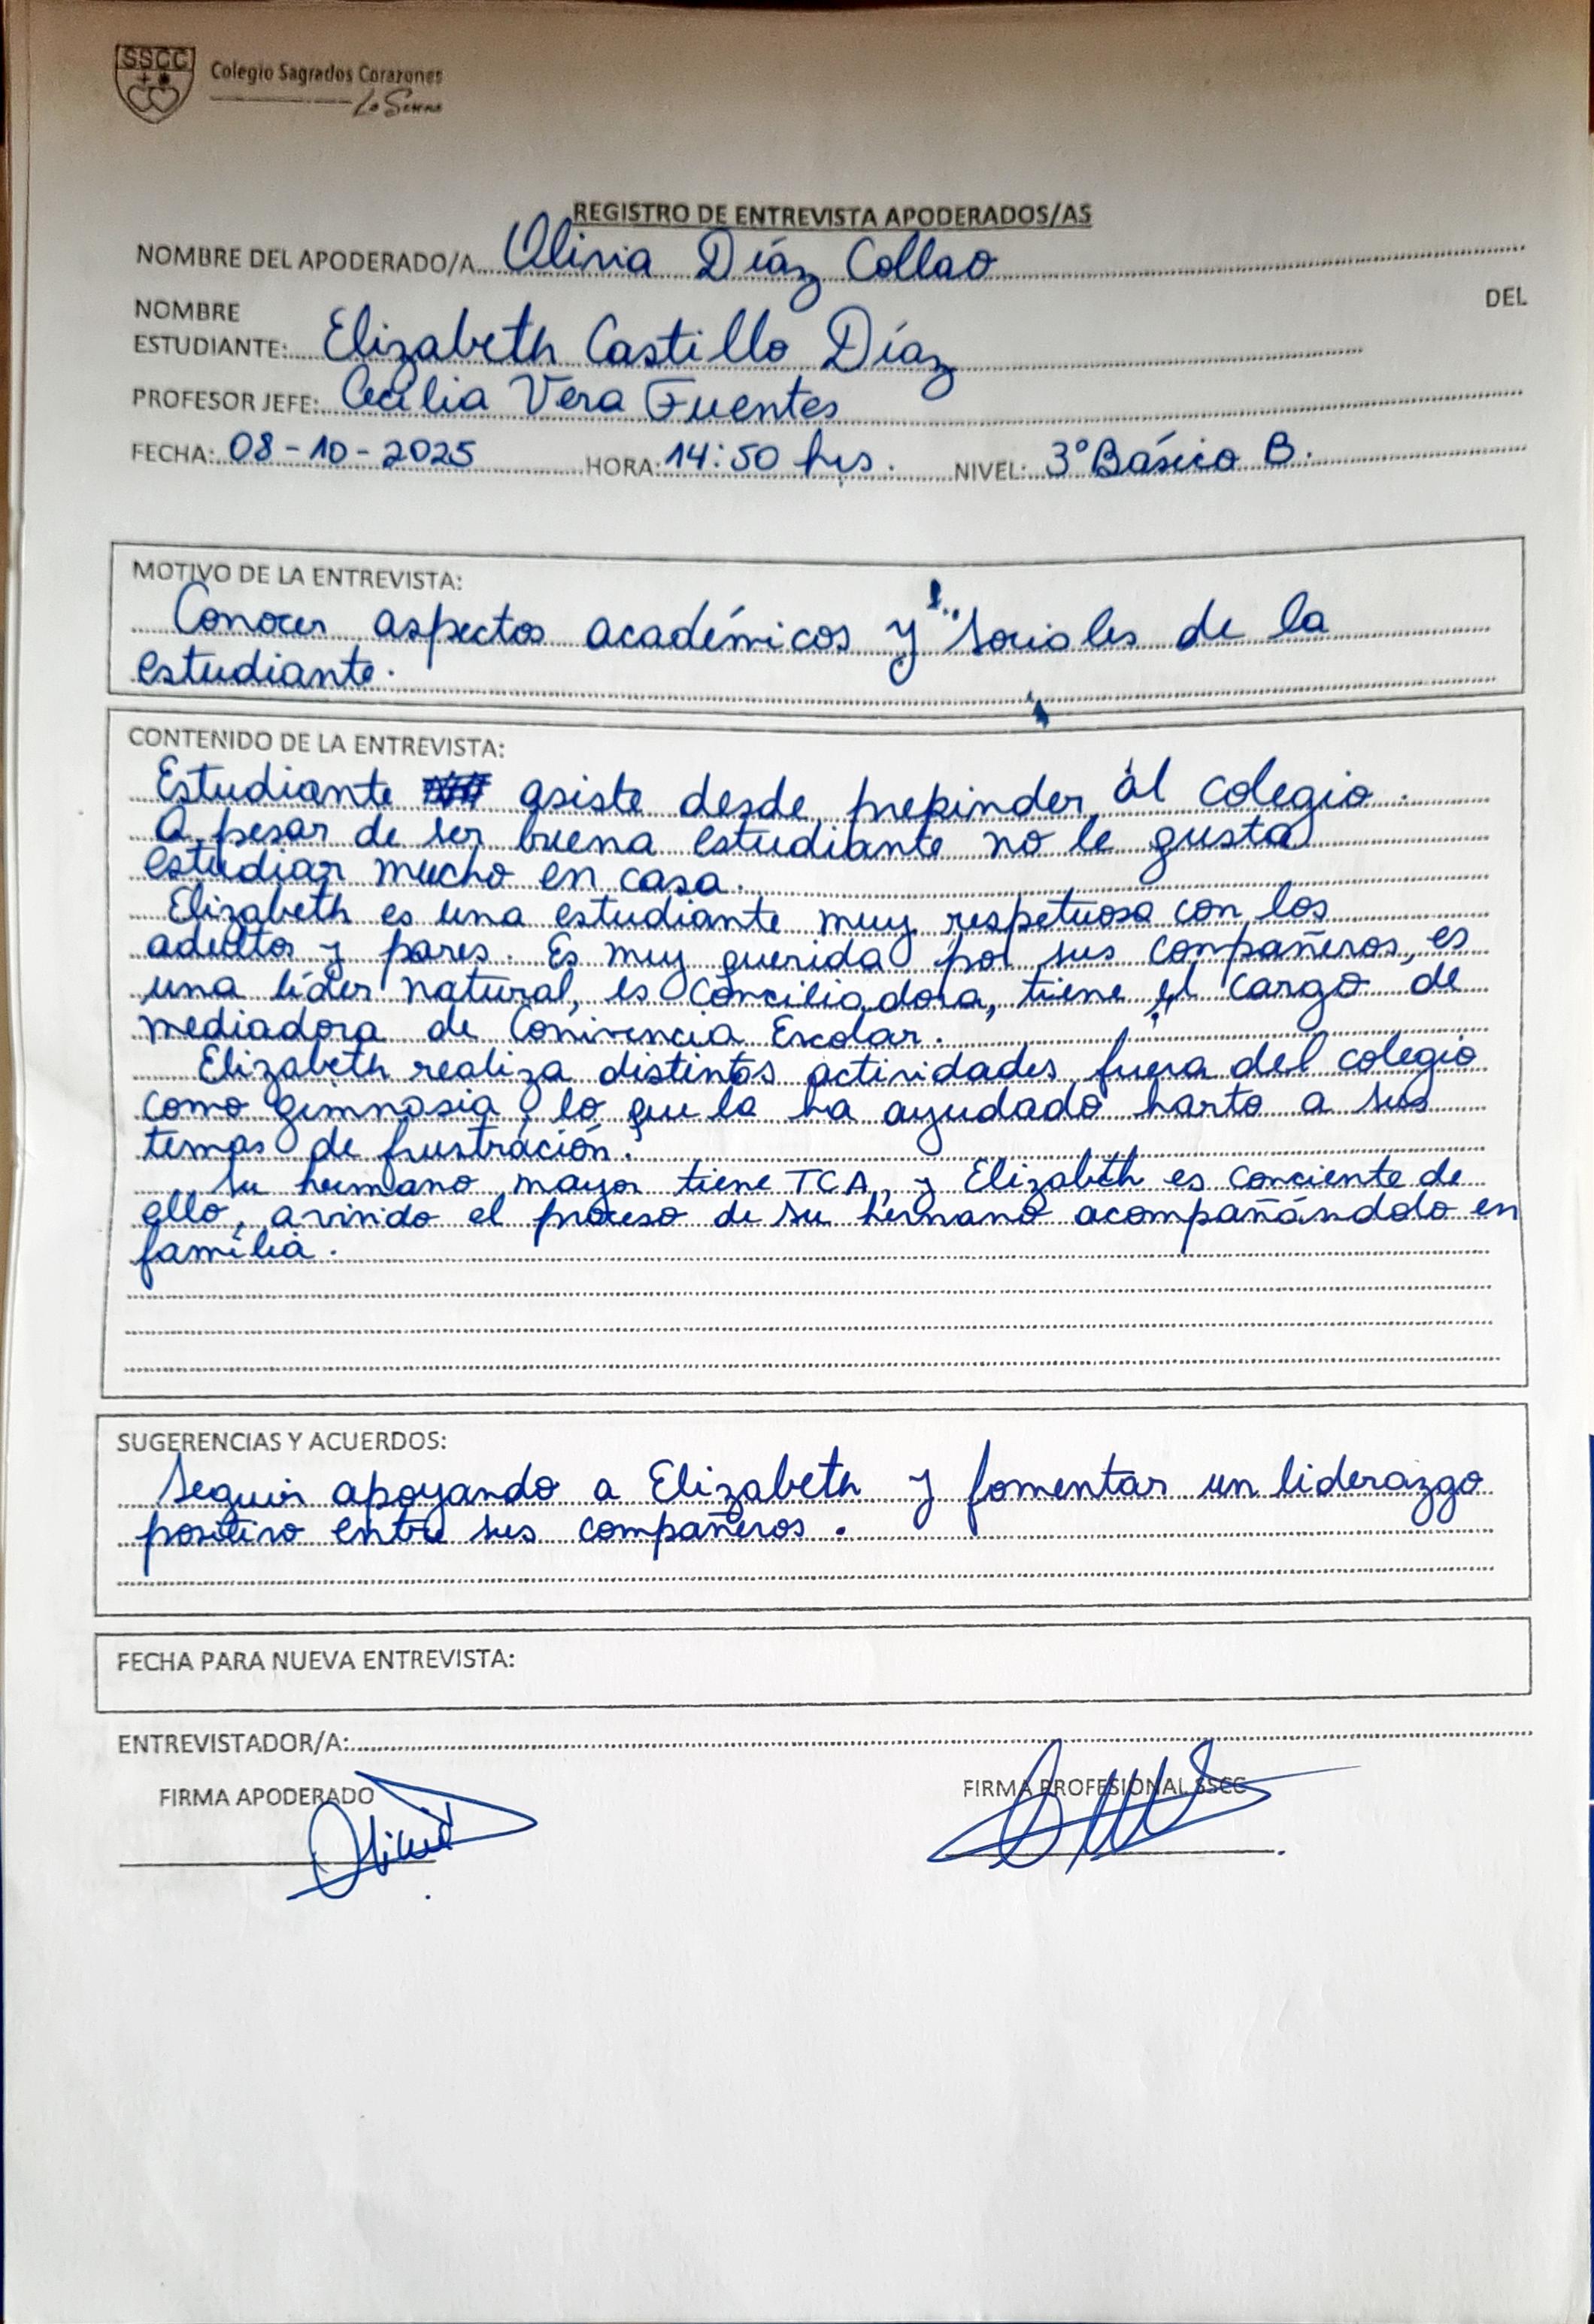 SSCC
Colegio Sagrados Corazones
La Serena
REGISTRO DE ENTREVISTA APODERADOS/AS
NOMBRE DEL APODERADO/A Olivia Díaz Collao
NOMBRE DEL
ESTUDIANTE: Elizabeth Castillo Díaz
PROFESOR JEFE: Cecilia Vera Fuentes
FECHA: 08-10-2025 HORA: 14:50 hrs. NIVEL: 3° Básico B.
MOTIVO DE LA ENTREVISTA:
Conocer aspectos académicos y sociales de la
estudiante.
CONTENIDO DE LA ENTREVISTA:
Estudiante asiste desde prekinder al colegio.
A pesar de ser buena estudiante no le gusta
estudiar mucho en casa.
Elizabeth es una estudiante muy respetuosa con los
adultos y pares. Es muy querida por sus compañeros, es
una líder natural, es conciliadora, tiene el cargo de
mediadora de Convivencia Escolar.
Elizabeth realiza distintas actividades fuera del colegio
como gimnasia, lo que la ha ayudado harto a sus
temas de frustración.
Su hermano mayor tiene TCA, y Elizabeth es conciente de
ello, a vivido el proceso de su hermano acompañándolo en
familia.
SUGERENCIAS Y ACUERDOS:
Seguir apoyando a Elizabeth y fomentar un liderazgo
positivo entre sus compañeros.
FECHA PARA NUEVA ENTREVISTA:
ENTREVISTADOR/A:
FIRMA APODERADO FIRMA PROFESIONAL SSCC
Olivia